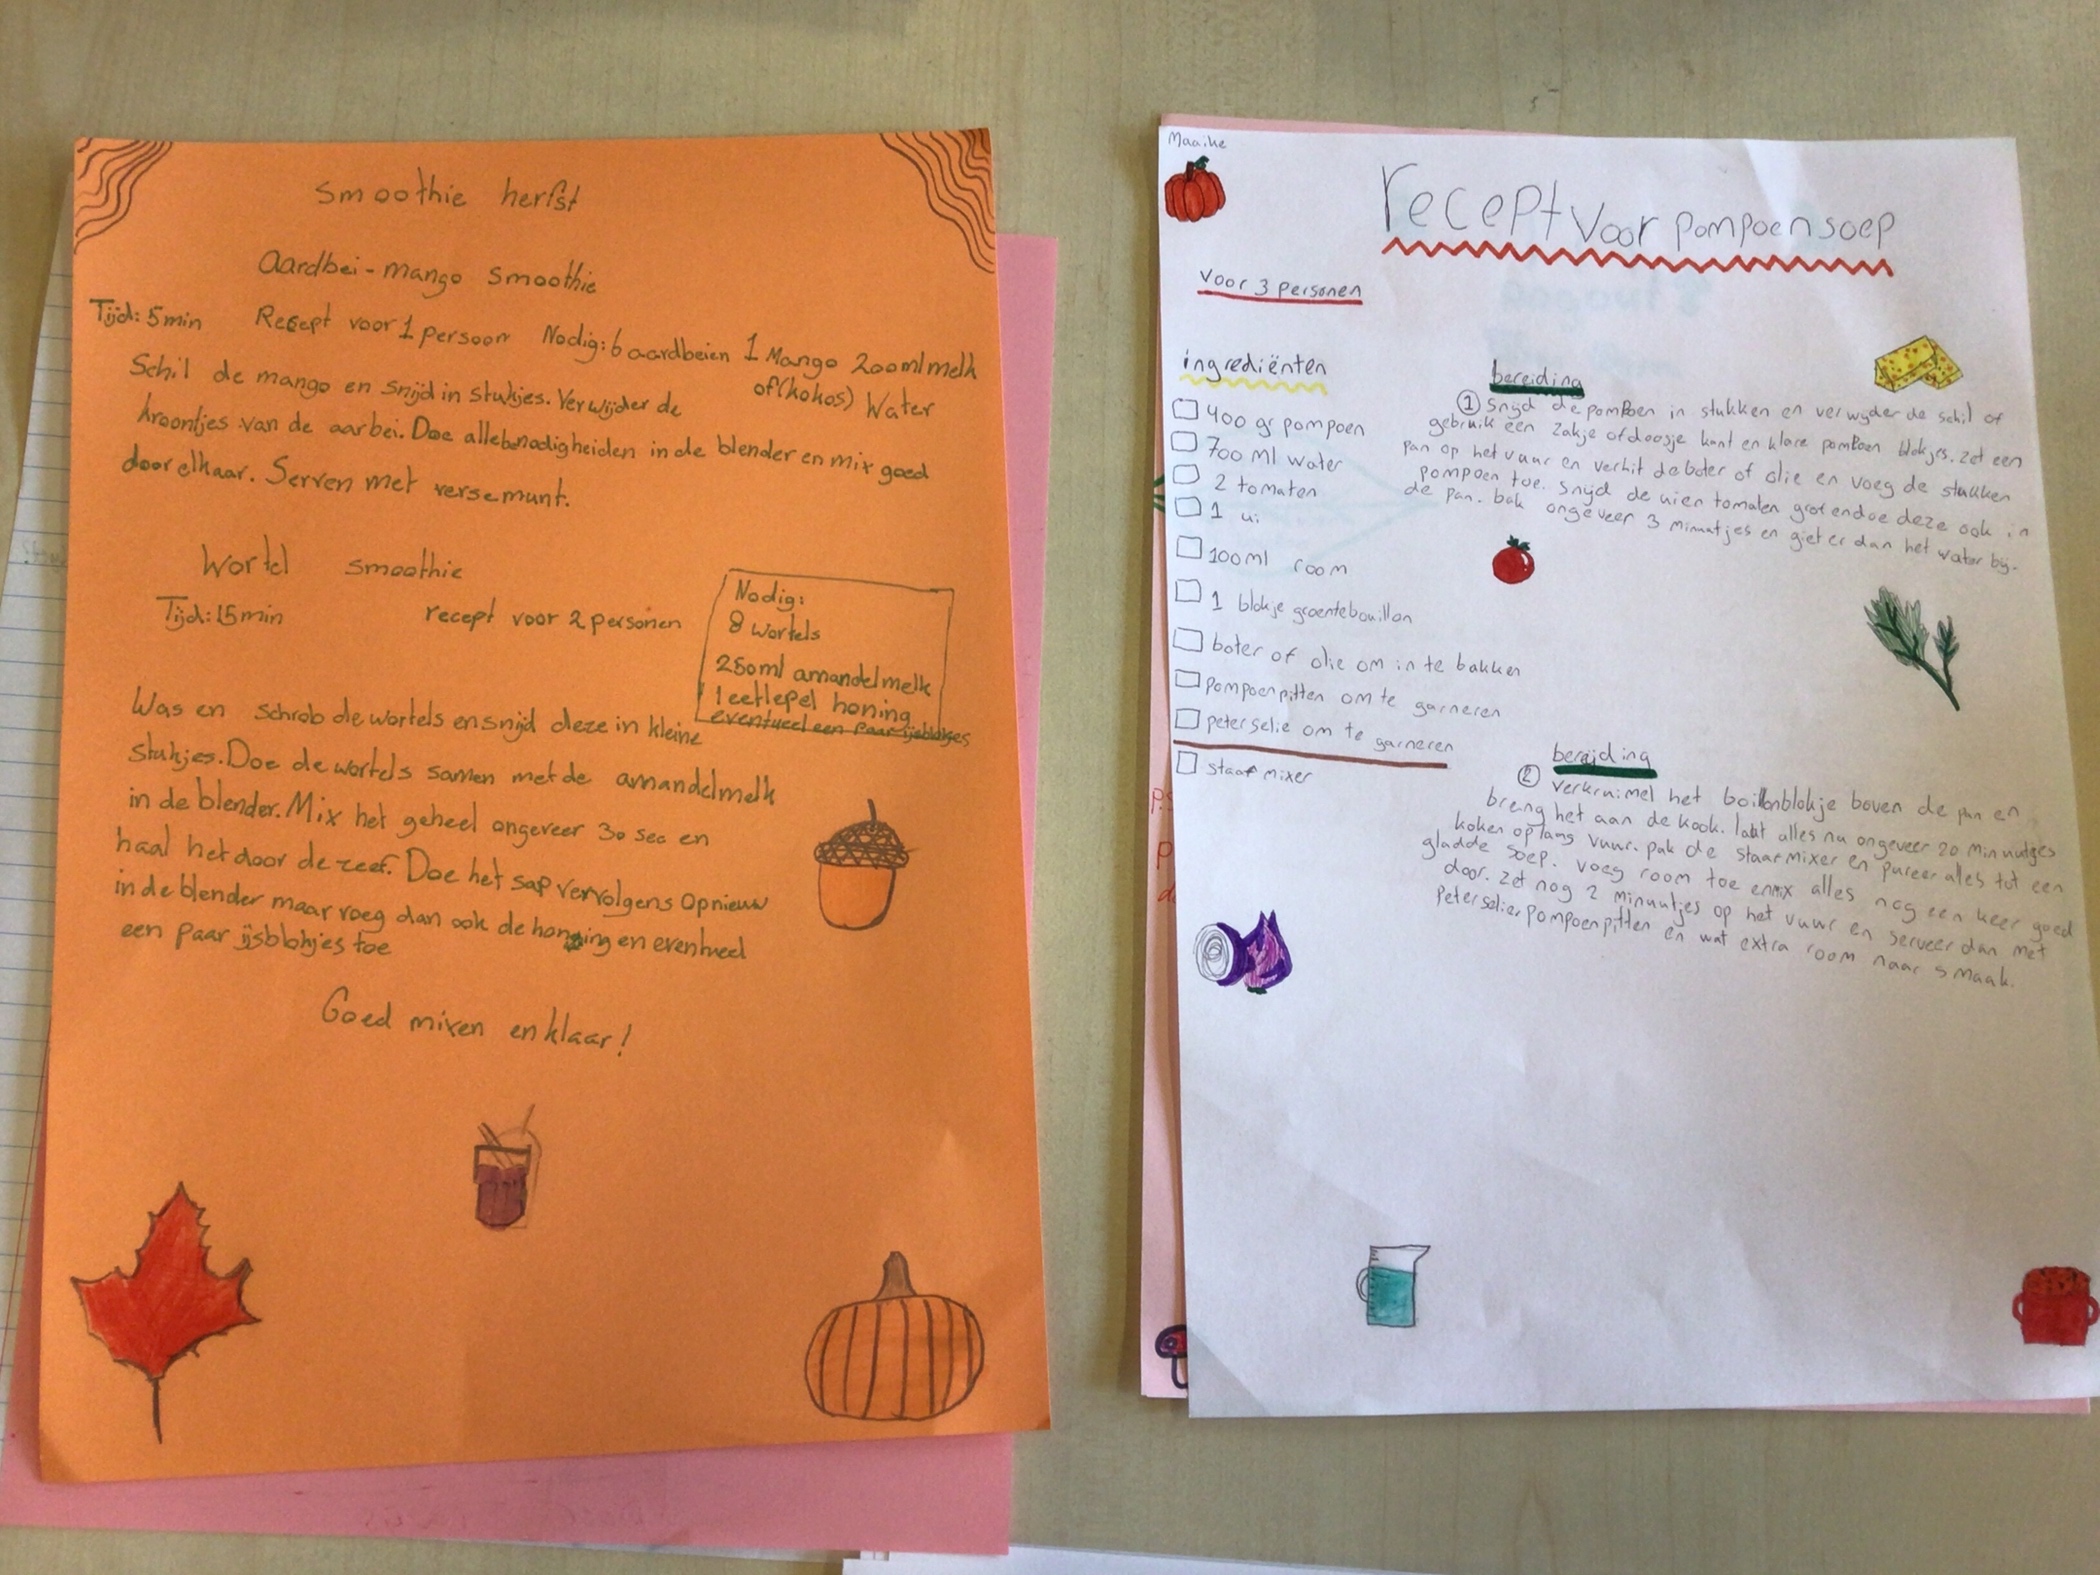 smoothie herfst
Aardbei-mango smoothie
Tijd: 5 min Recept voor 1 persoon Nodig: 6 aardbeien 1 Mango 200ml melk
of (kokos) Water
Schil de mango en snijd in stukjes. Verwijder de
kroontjes van de aarbei. Doe alle benodigheiden in de blender en mix goed
door elkaar. Serven met verse munt.
Wortel smoothie
Tijd: 15min recept voor 2 personen
Nodig:
8 wortels
250ml amandelmelk
1 eetlepel honing
eventueel een paar ijsblokjes
Was en schrob de wortels en snijd deze in kleine
stukjes. Doe de wortels samen met de amandelmelk
in de blender. Mix het geheel ongeveer 30 sec en
haal het door de zeef. Doe het sap vervolgens opnieuw
in de blender maar voeg dan ook de honing en eventueel
een paar ijsblokjes toe
Goed mixen en klaar!
Maaike
recept voor pompoensoep
voor 3 personen
ingrediënten
400 gr pompoen
700 ml water
2 tomaten
1 ui
100ml room
1 blokje groentebouillon
boter of olie om in te bakken
pompoenpitten om te garneren
peterselie om te garneren
staafmixer
bereiding
1 Snijd de pompoen in stukken en verwyder de schil of
gebruik een zakje of doosje kant en klare pompoen blokjes. zet een
pan op het vuur en verhit de boter of olie en voeg de stukken
pompoen toe. snijd de uien tomaten grof en doe deze ook in
de pan. bak ongeveer 3 minuutjes en giet er dan het water bij.
bereiding
2 verkruimel het boillonblokje boven de pan en
breng het aan de kook. laat alles nu ongeveer 20 minuutjes
koken op laag vuur. pak de staafmixer en pureer alles tot een
gladde soep. voeg room toe en mix alles nog een keer goed
door. zet nog 2 minuutjes op het vuur en serveer dan met
Peterselie, pompoenpitten en wat extra room naar smaak.